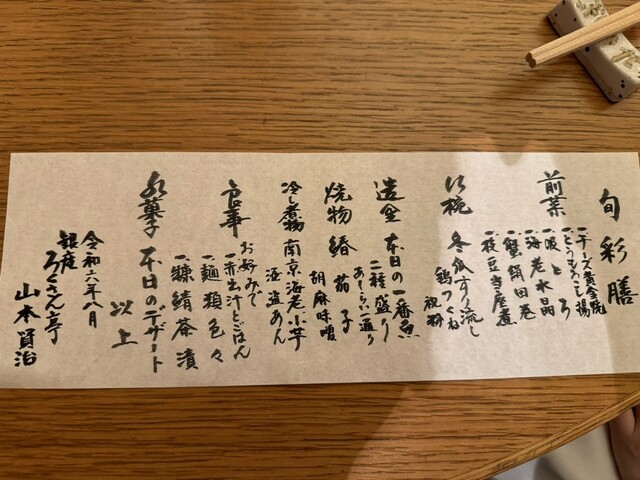 旬彩膳
前菜
一、チーズ黄金焼
一、とうもろこし揚
一、吸とろ
一、海老水晶
一、蟹絹田巻
一、枝豆含煮
椀
冬瓜すり流し
鶏つくね
造里
本日の一番魚
二種盛り
あしらい一通り
焼物
茄子
胡麻味噌
冷し煮物
南京海老小芋
お好みで
一、赤出汁とごはん
一、麺類色々
一、鯖茶漬
水菓子
本日のデザート
以上
令和六年八月
銀座
ろくさん亭
山本賢治